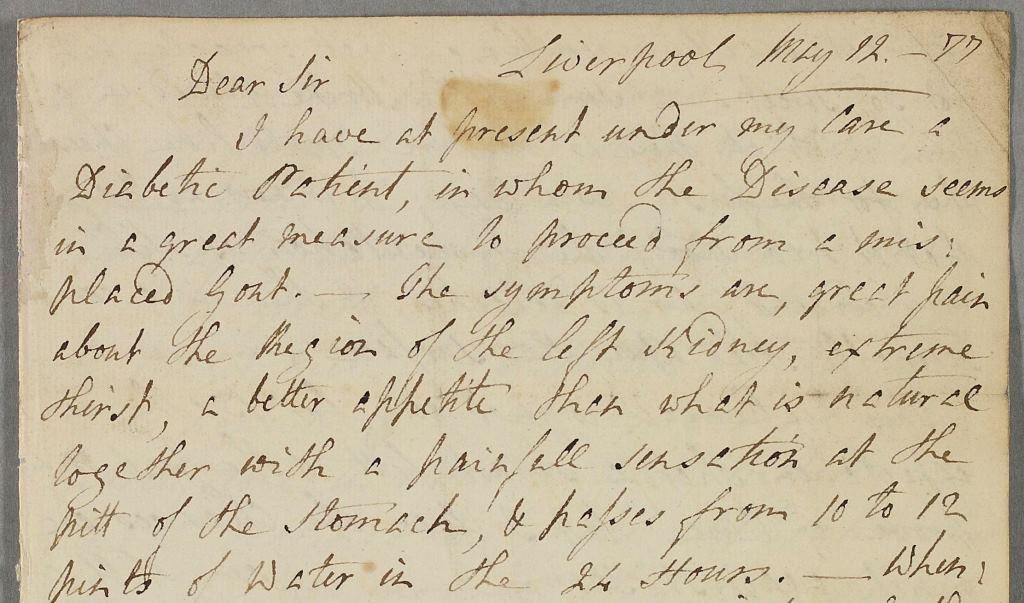 Liverpool May 12. — 77
Dear Sir
I have at present under my Care a
Diabetic Patient, in whom the Disease seems
in a great measure to proceed from a mis:
placed Gout. — The symptoms are, great pain
about the Region of the left Kidney, extreme
thirst, a better appetite than what is natural
together with a painfull sensation at the
pitt of the Stomach, & passes from 10 to 12
pints of Water in the 24 Hours. — When: